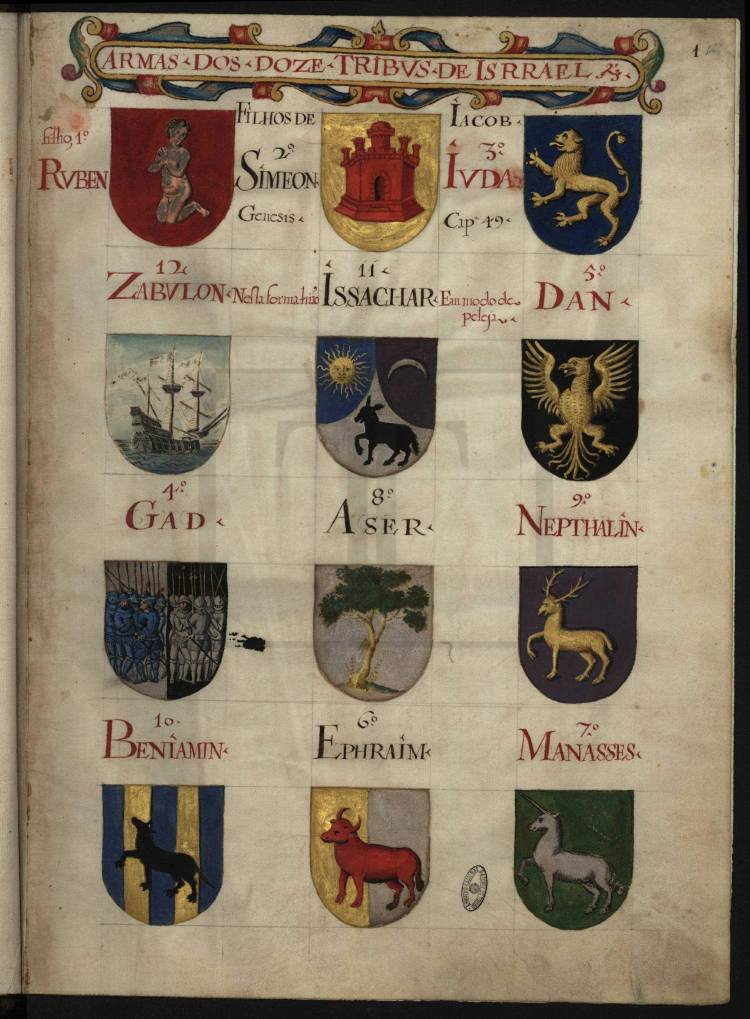 ARMAS DOS DOZE TRIBVS DE ISRRAEL
1
FILHOS DE IACOB
filho 1º 2º 3º
RVBEN SIMEON IVDA
Genesis Cap 49
12 11 5º
ZABVLON Nesta forma ISSACHAR Em modo de DAN
peleja
4º 8º 9º
GAD ASER NEPTHALIN
10 6º 7º
BENIAMIN EPHRAIM MANASSES